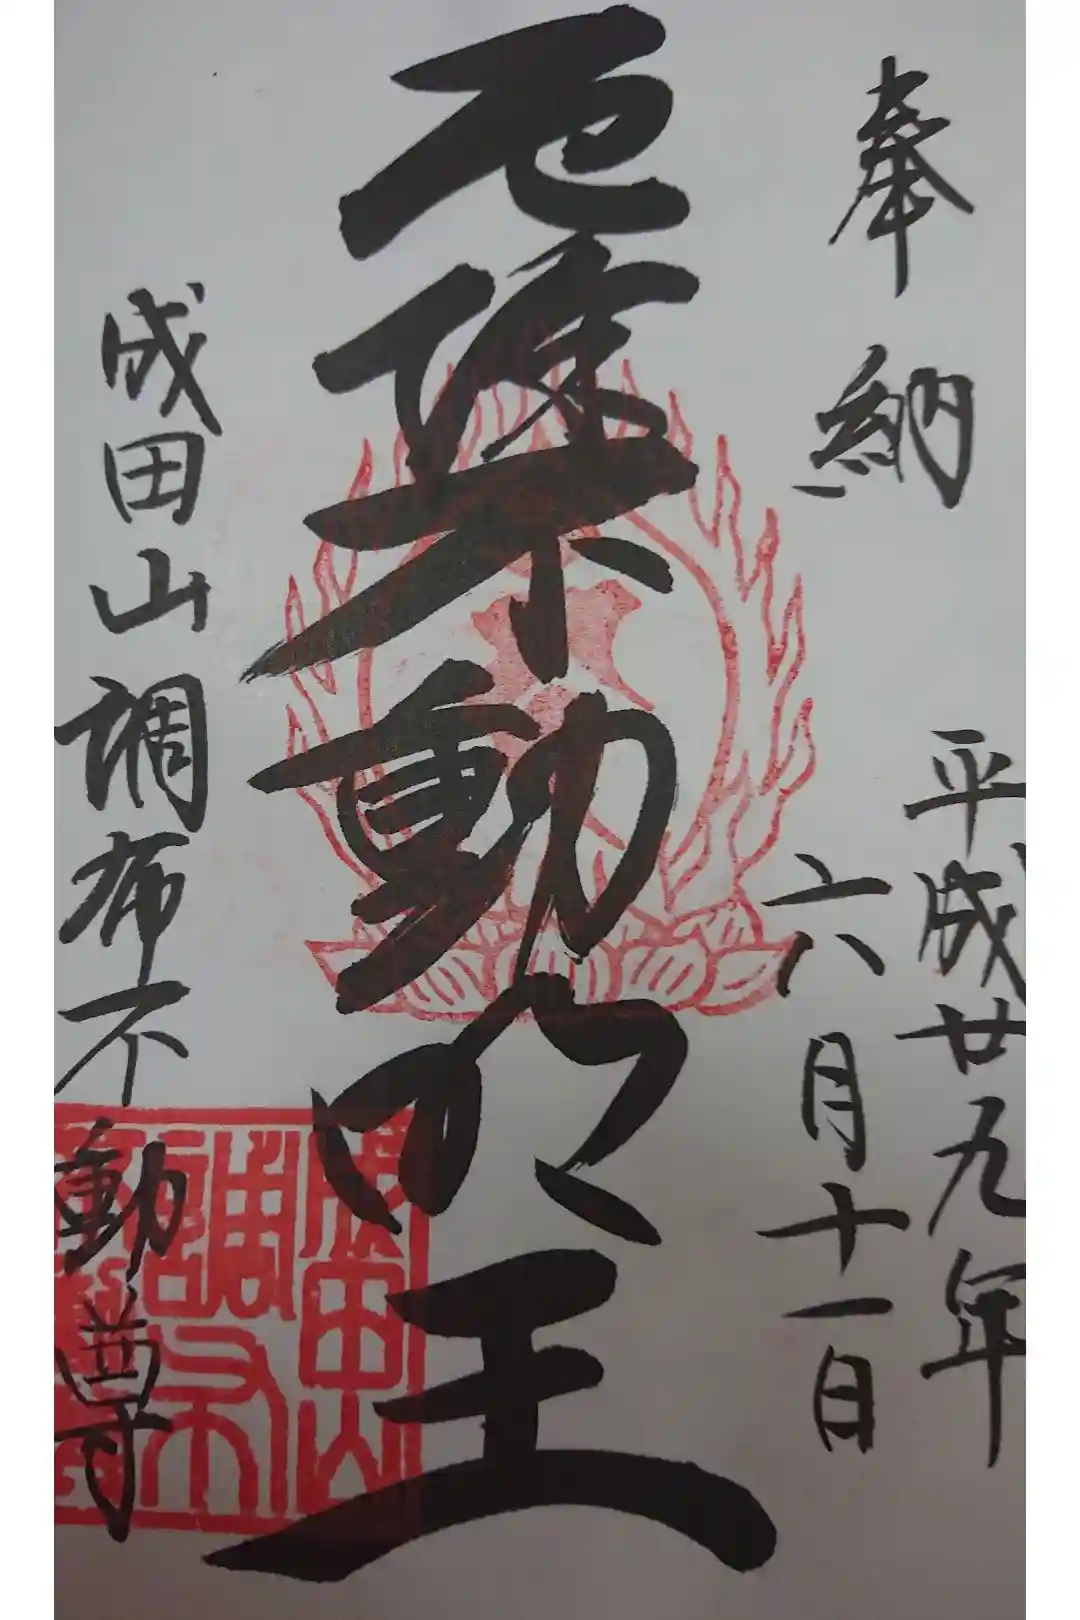 奉納
平成廿九年
六月十一日
厄除不動明王
成田山調布不動尊
成田山
調布